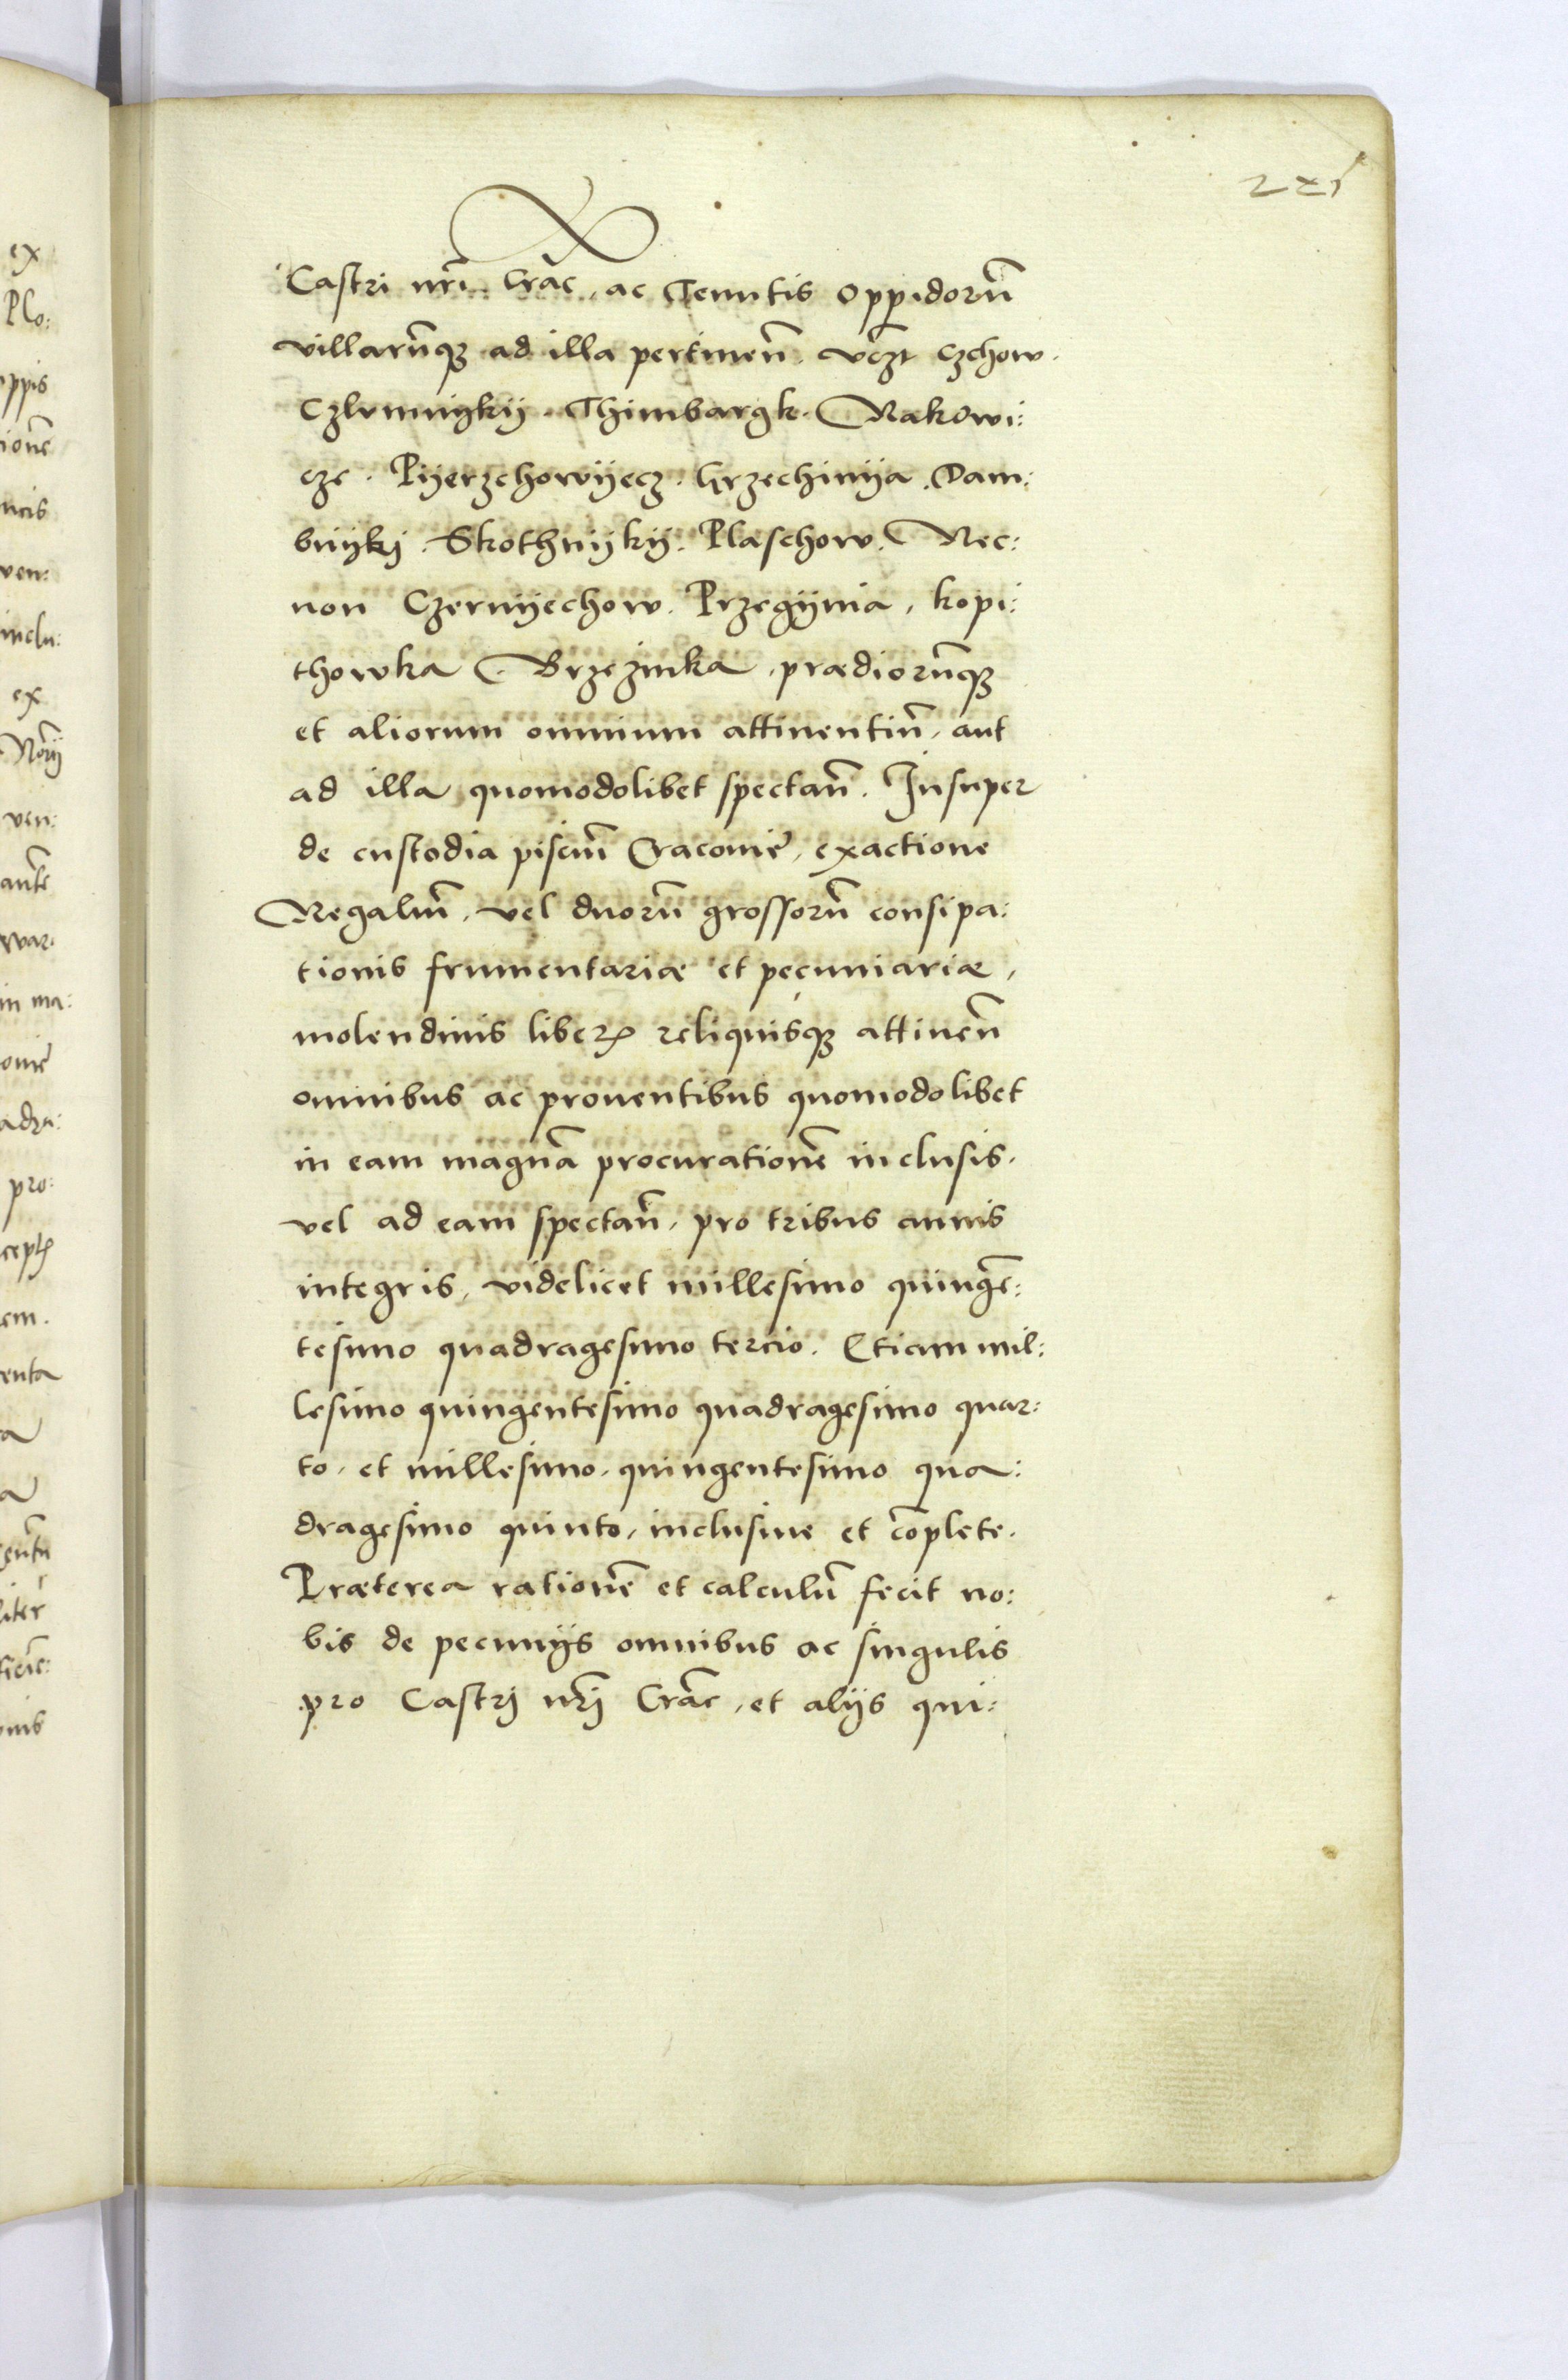 221
Castri nr̃i Crac̃, ac Tenutis Oppidorũ
villarũq3 ad illa pertineñ. vc3t Czchow.
Thimbargk. Rakowi:
cze. Pÿerzchowÿecz. Grzechinÿa. Dam:
bnÿkj. Skothnÿkÿ. Plaschow. Nec:
non Czernÿechow. Przegÿnia, kopi:
thowka. Brzezinka, prædiorũq3
et aliorum omnium attinentiũ, aut
ad illa quomodolibet spectañ. Insuper
de custodia pisciũ Cracouieñ, exactione
Regaliũ, vel duorũ grossorũ consipa:
tionis frumentariæ et pecuniariæ,
molendinis liberꝭ reliquisq3 attineñ
omnibus ac prouentibus quomodolibet
in eam magnã procurationẽ inclusis.
vel ad eam spectañ, pro tribus annis
integris, videlicet millesimo quingẽ:
tesimo quadragesimo tercio. Etiam mil:
lesimo quingentesimo quadragesimo quar:
to, et millesimo quingentesimo qua:
dragesimo quinto, inclusiue et cõplete.
Præterea rationẽ et calculũ fecit no:
bis de pecunijs omnibus ac singulis
pro Castrj nr̃j Crac̃, et alijs qui:
ex
Plo:
ven:
inclu:
ex
ven:
in ma:
pro: